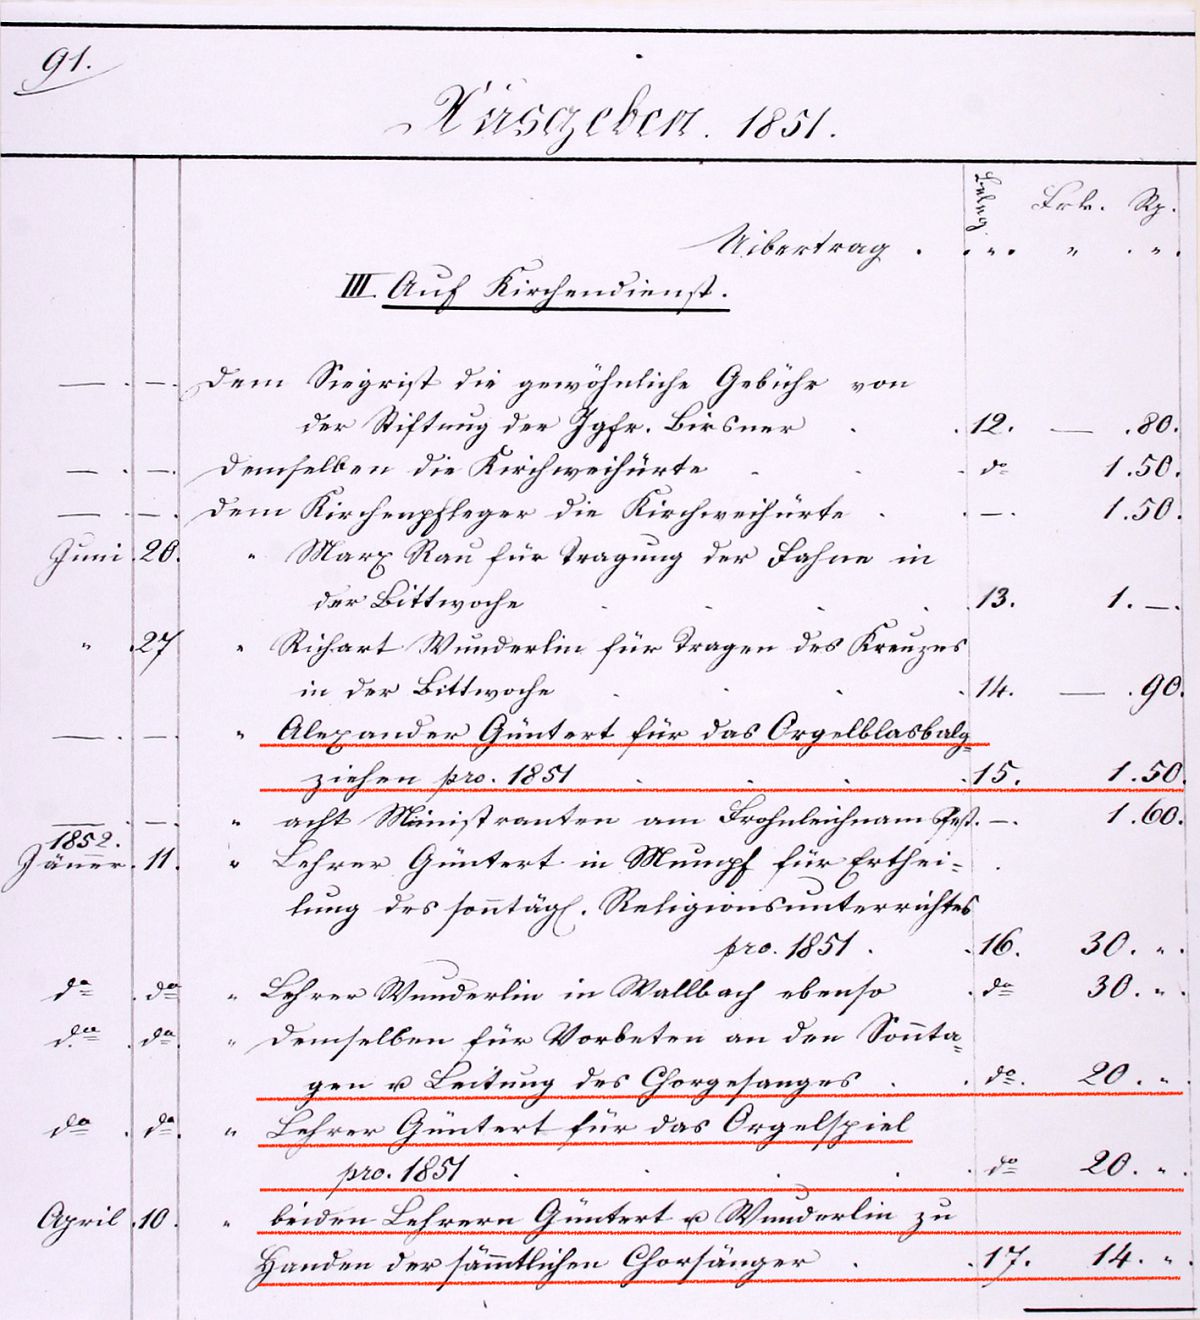 91.
Ausgeben. 1851.
Beleg Frk. Rp.
Uibertrag . . „ . „ . „
III. Auf Kirchendienst.
— . — . Dem Siegrist die gewöhnliche Gebühr von
der Stiftung der Jgfr. Birsner . . 12. — .80.
— . — . Demselben die Kirchweihürte . . . do 1.50.
— . — . Dem Kirchenpfleger die Kirchweihürte . . — . 1.50.
Juni . 20. „ Marx Rau für Tragung der Fahne in
der Bittwoche . . . . 13. 1. — .
„ . 27 „ Richart Wunderlin für Tragen des Kreuzes
in der Bittwoche . . . . 14. — .90.
— . — . „ Alexander Güntert für das Orgelblasbalg=
ziehen pro. 1851 . . . . 15. 1.50.
— . — . „ acht Ministranten am Frohnleichnamsfest. — . 1.60.
1852.
Jäner . 11. „ Lehrer Güntert in Mumpf für Erthei=
lung des sonntägl. Religionsunterrichtes
pro. 1851 . . 16. 30. „ .
do . do „ Lehrer Wunderlin in Wallbach ebenso . do 30. „ .
do . do „ Demselben für Vorbeten an den Sonnta=
gen u Leitung des Chorgesanges . . do . 20. „ .
do . do . „ Lehrer Güntert für das Orgelspiel
pro. 1851 . . . . . do 20. „ .
April . 10. „ beiden Lehrern Güntert u Wunderlin zu
Handen der sämmtlichen Chorsänger . . 17. 14. „